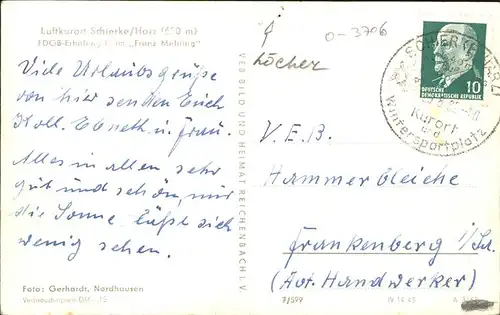 Luftkurort Schierke/Harz (650 m)
FDGB-Erholungsheim "Franz Mehring"
Viele Urlaubsgrüße
von hier senden Euch
Koll. Ebneth u. Frau.
Alles in allem sehr
gut und schön, nur
die Sonne läßt sich
wenig sehen.
Foto: Gerhardt, Nordhausen
Verbraucherpreis DM -,15
VEB BILD UND HEIMAT REICHENBACH I. V.
Löcher
0-3706
SCHIERKE
Kurort
und
Wintersportplatz
DEUTSCHE
DEMOKRATISCHE REPUBLIK
10
V.E.B.
Hammerbleiche
Frankenberg i/Sa.
(Abt. Handwerker)
7/599
IV 14 45